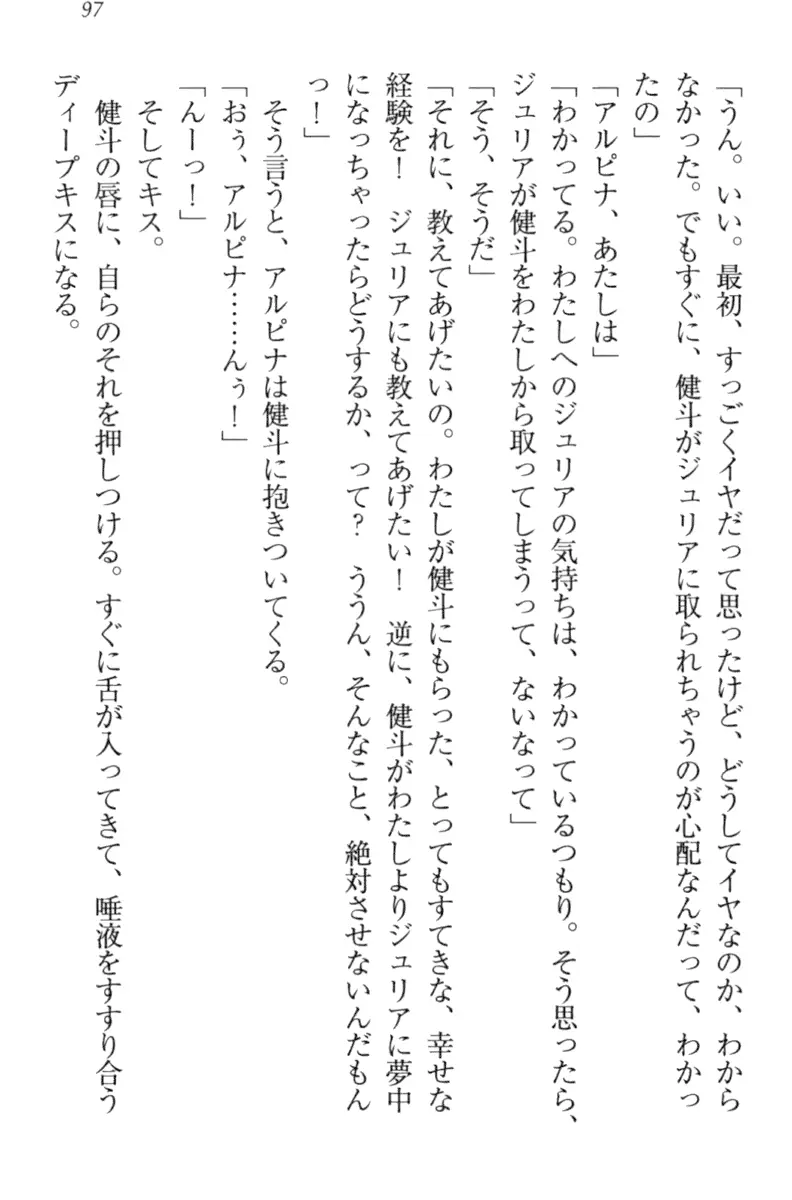 97
「うん。いい。最初、すっごくイヤだって思ったけど、どうしてイヤなのか、わから
なかった。でもすぐに、健斗がジュリアに取られちゃうのが心配なんだって、わかっ
たの」
「アルピナ、あたしは」
「わかってる。わたしへのジュリアの気持ちは、わかっているつもり。そう思ったら、
ジュリアが健斗をわたしから取ってしまうって、ないなって」
「そう、そうだ」
「それに、教えてあげたいの。わたしが健斗にもらった、とってもすてきな、幸せな
経験を！　ジュリアにも教えてあげたい！　逆に、健斗がわたしよりジュリアに夢中
になっちゃったらどうするか、って？　ううん、そんなこと、絶対させないんだもん
っ！」
　そう言うと、アルピナは健斗に抱きついてくる。
「おぅ、アルピナ……んぅ！」
「んーっ！」
　そしてキス。
　健斗の唇に、自らのそれを押しつける。すぐに舌が入ってきて、唾液をすすり合う
ディープキスになる。